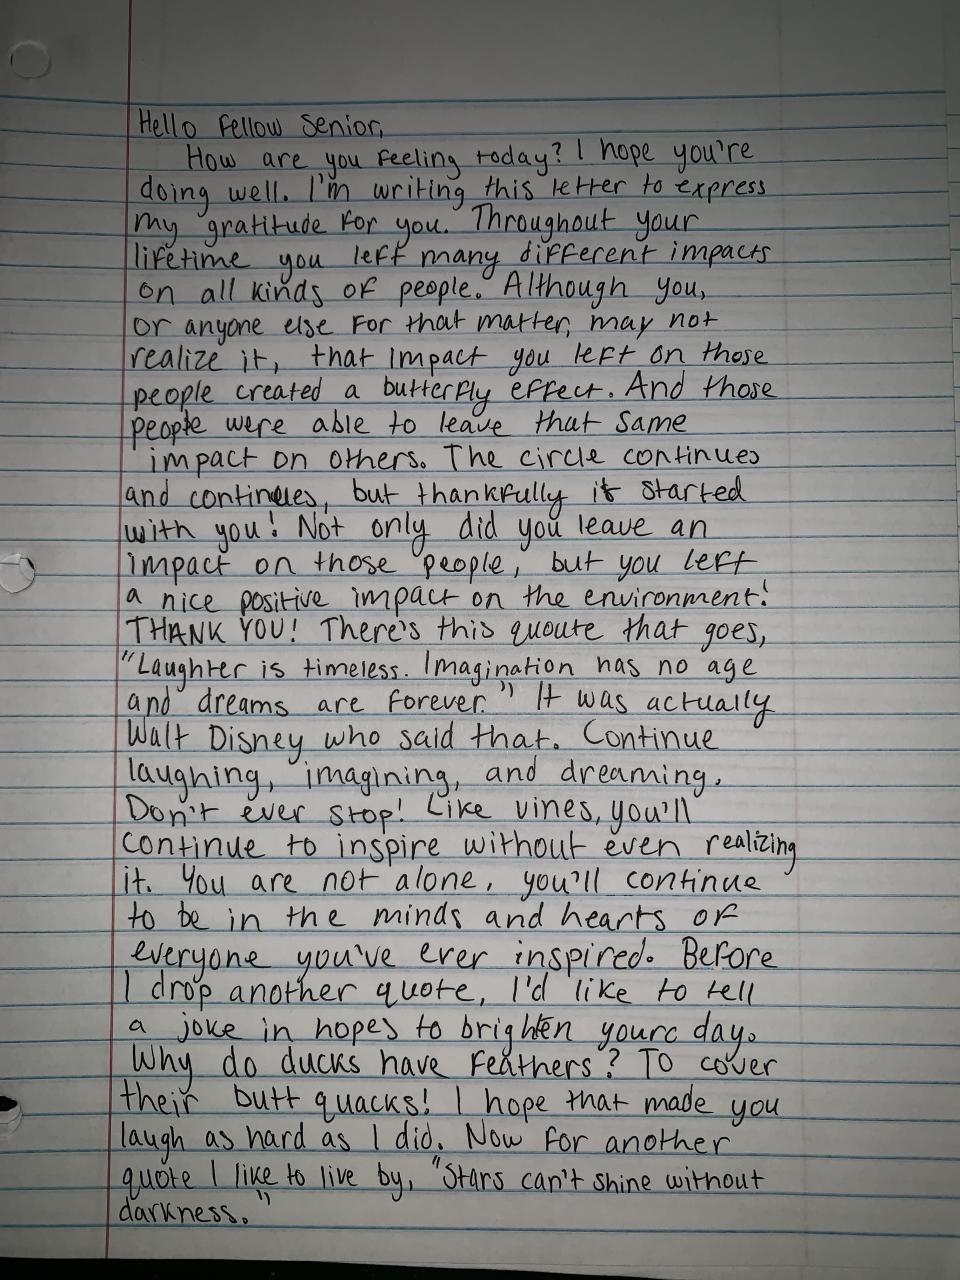 Hello Fellow Senior,
How are you feeling today? I hope you're
doing well. I'm writing this letter to express
my gratitude for you. Throughout your
lifetime you left many different impacts
on all kinds of people. Although you,
or anyone else for that matter, may not
realize it, that impact you left on those
people created a butterfly effect. And those
people were able to leave that same
impact on others. The circle continues
and continues, but thankfully it started
with you! Not only did you leave an
impact on those people, but you left
a nice positive impact on the environment!
THANK YOU! There's this quoute that goes,
"Laughter is timeless. Imagination has no age
and dreams are forever." It was actually
Walt Disney who said that. Continue
laughing, imagining, and dreaming.
Don't ever stop! Like vines, you'll
continue to inspire without even realizing
it. You are not alone, you'll continue
to be in the minds and hearts of
everyone you've ever inspired. Before
I drop another quote, I'd like to tell
a joke in hopes to brighten your day.
Why do ducks have feathers? To cover
their butt quacks! I hope that made you
laugh as hard as I did. Now for another
quote I like to live by, "Stars can't shine without
darkness."